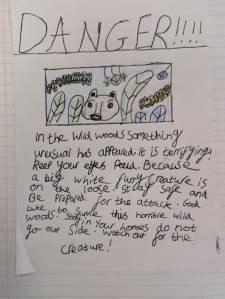 DANGER!!!!
In the wild woods something
unusual has appeared. It is terrifying!
Keep your eyes Peeld. Because
a big white furry creature is
on the loose. Stay safe and
Be Prepared for the attack. Good
luke to survive this horrible wild
woods. Stay in your homes do not
go out side. watch out for the
creature!